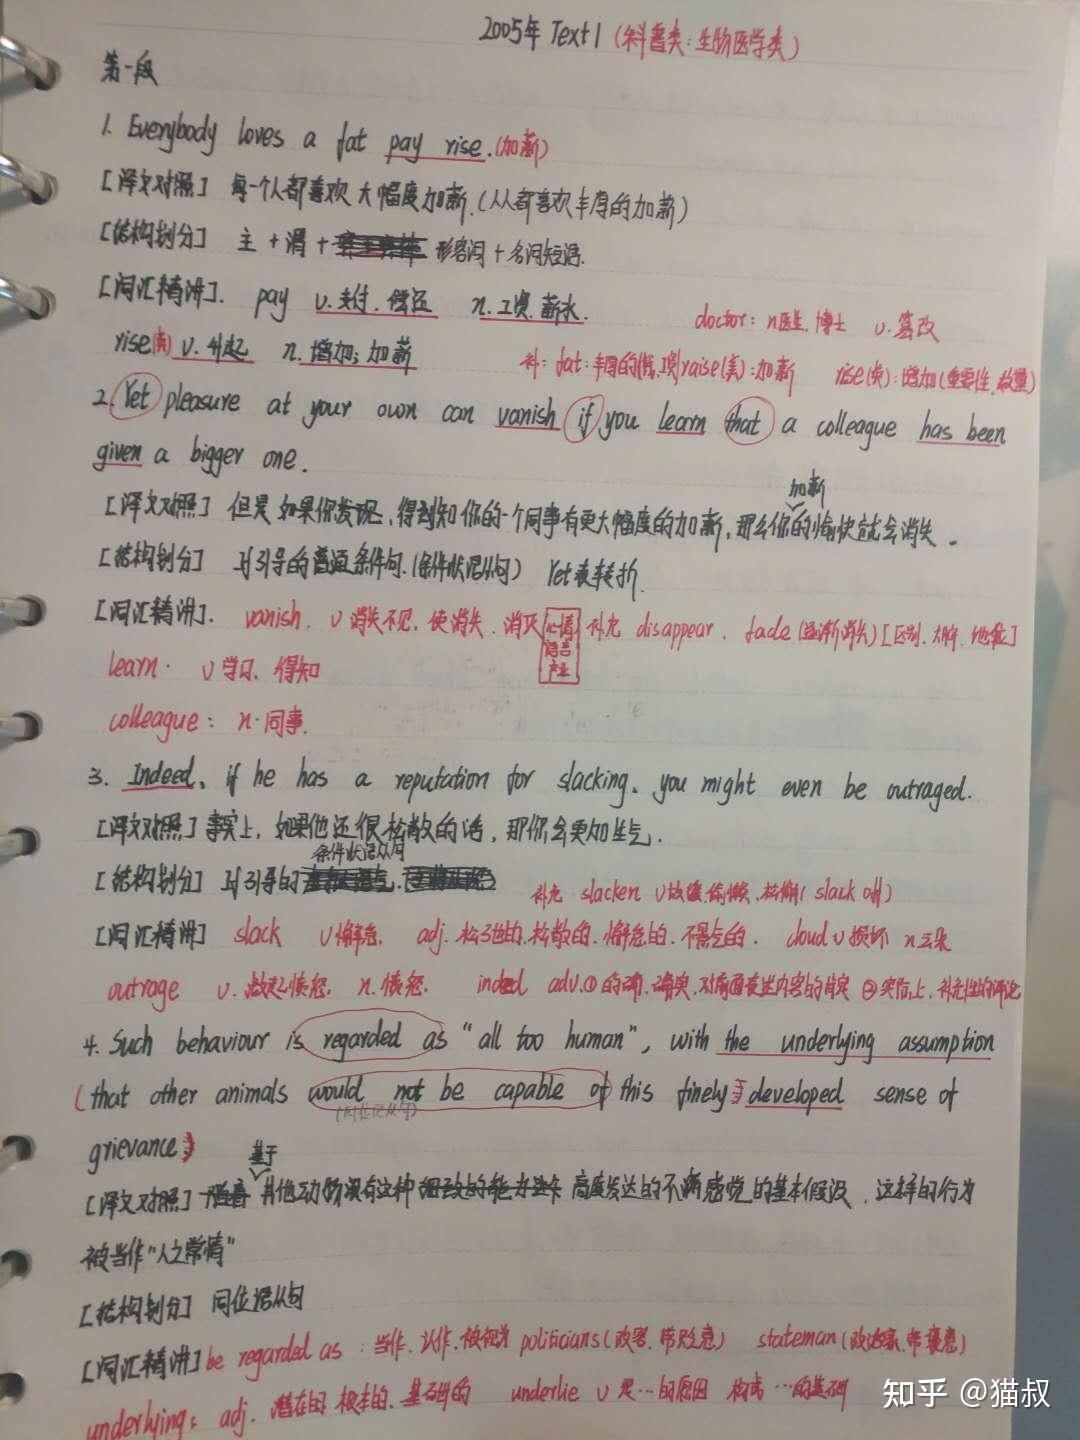 2005年 Text1 (科普类:生物医学类)
第一段
1. Everybody loves a fat pay rise.(加薪)
[译文对照] 每一个人都喜欢大幅度加薪.(人人都喜欢丰厚的加薪)
[结构划分] 主+谓+ 形容词+名词短语.
[词汇精讲]. pay v.支付.偿还 n.工资.薪水. doctor: n医生.博士 v.篡改
rise(英) v.升起 n.增加;加薪 补: fat:丰厚的(钱,项) raise(美):加薪 rise(英):增加(重要性.数量)
2. Yet pleasure at your own can vanish if you learn that a colleague has been
given a bigger one.
加薪
[译文对照] 但是如果你发现,得到知你的一个同事有更大幅度的加薪,那么你的愉快就会消失.
[结构划分] if引导的普通条件句.(条件状语从句) Yet表转折.
[词汇精讲]. vanish. v消失不见.使消失.消灭 心情 语言 产业 补充 disappear. fade(逐渐消失)[区别.大脑.地位]
learn. v学习.得知
colleague: n.同事.
3. Indeed, if he has a reputation for slacking, you might even be outraged.
[译文对照] 事实上,如果他还很松散的话,那你会更加生气.
条件状语从句
[结构划分] if引导的 补充 slacken v放缓.偷懒.松懈(slack off)
[词汇精讲] slack v懈怠, adj.松弛的.松散的.懈怠的.不景气的. cloud v损坏 n云朵
outrage v.激起愤怒, n.愤怒. indeed adv.①的确.确实.对前面表述内容的肯定 ②实际上.补充性的评论
4. Such behaviour is regarded as "all too human", with the underlying assumption
(that other animals would not be capable of this finely developed sense of
(同位语从句)
grievance)
基于
[译文对照] 其他动物没有这种 高度发达的不满感觉的基本假设,这样的行为
被当作"人之常情"
[结构划分] 同位语从句
[词汇精讲] be regarded as:当作.认作.被视为 politicians(政客.带贬意) stateman(政治家.带褒意)
underlying: adj. 潜在的.根本的.基础的 underlie v是…的原因 构成…的基础
知乎 @猫叔